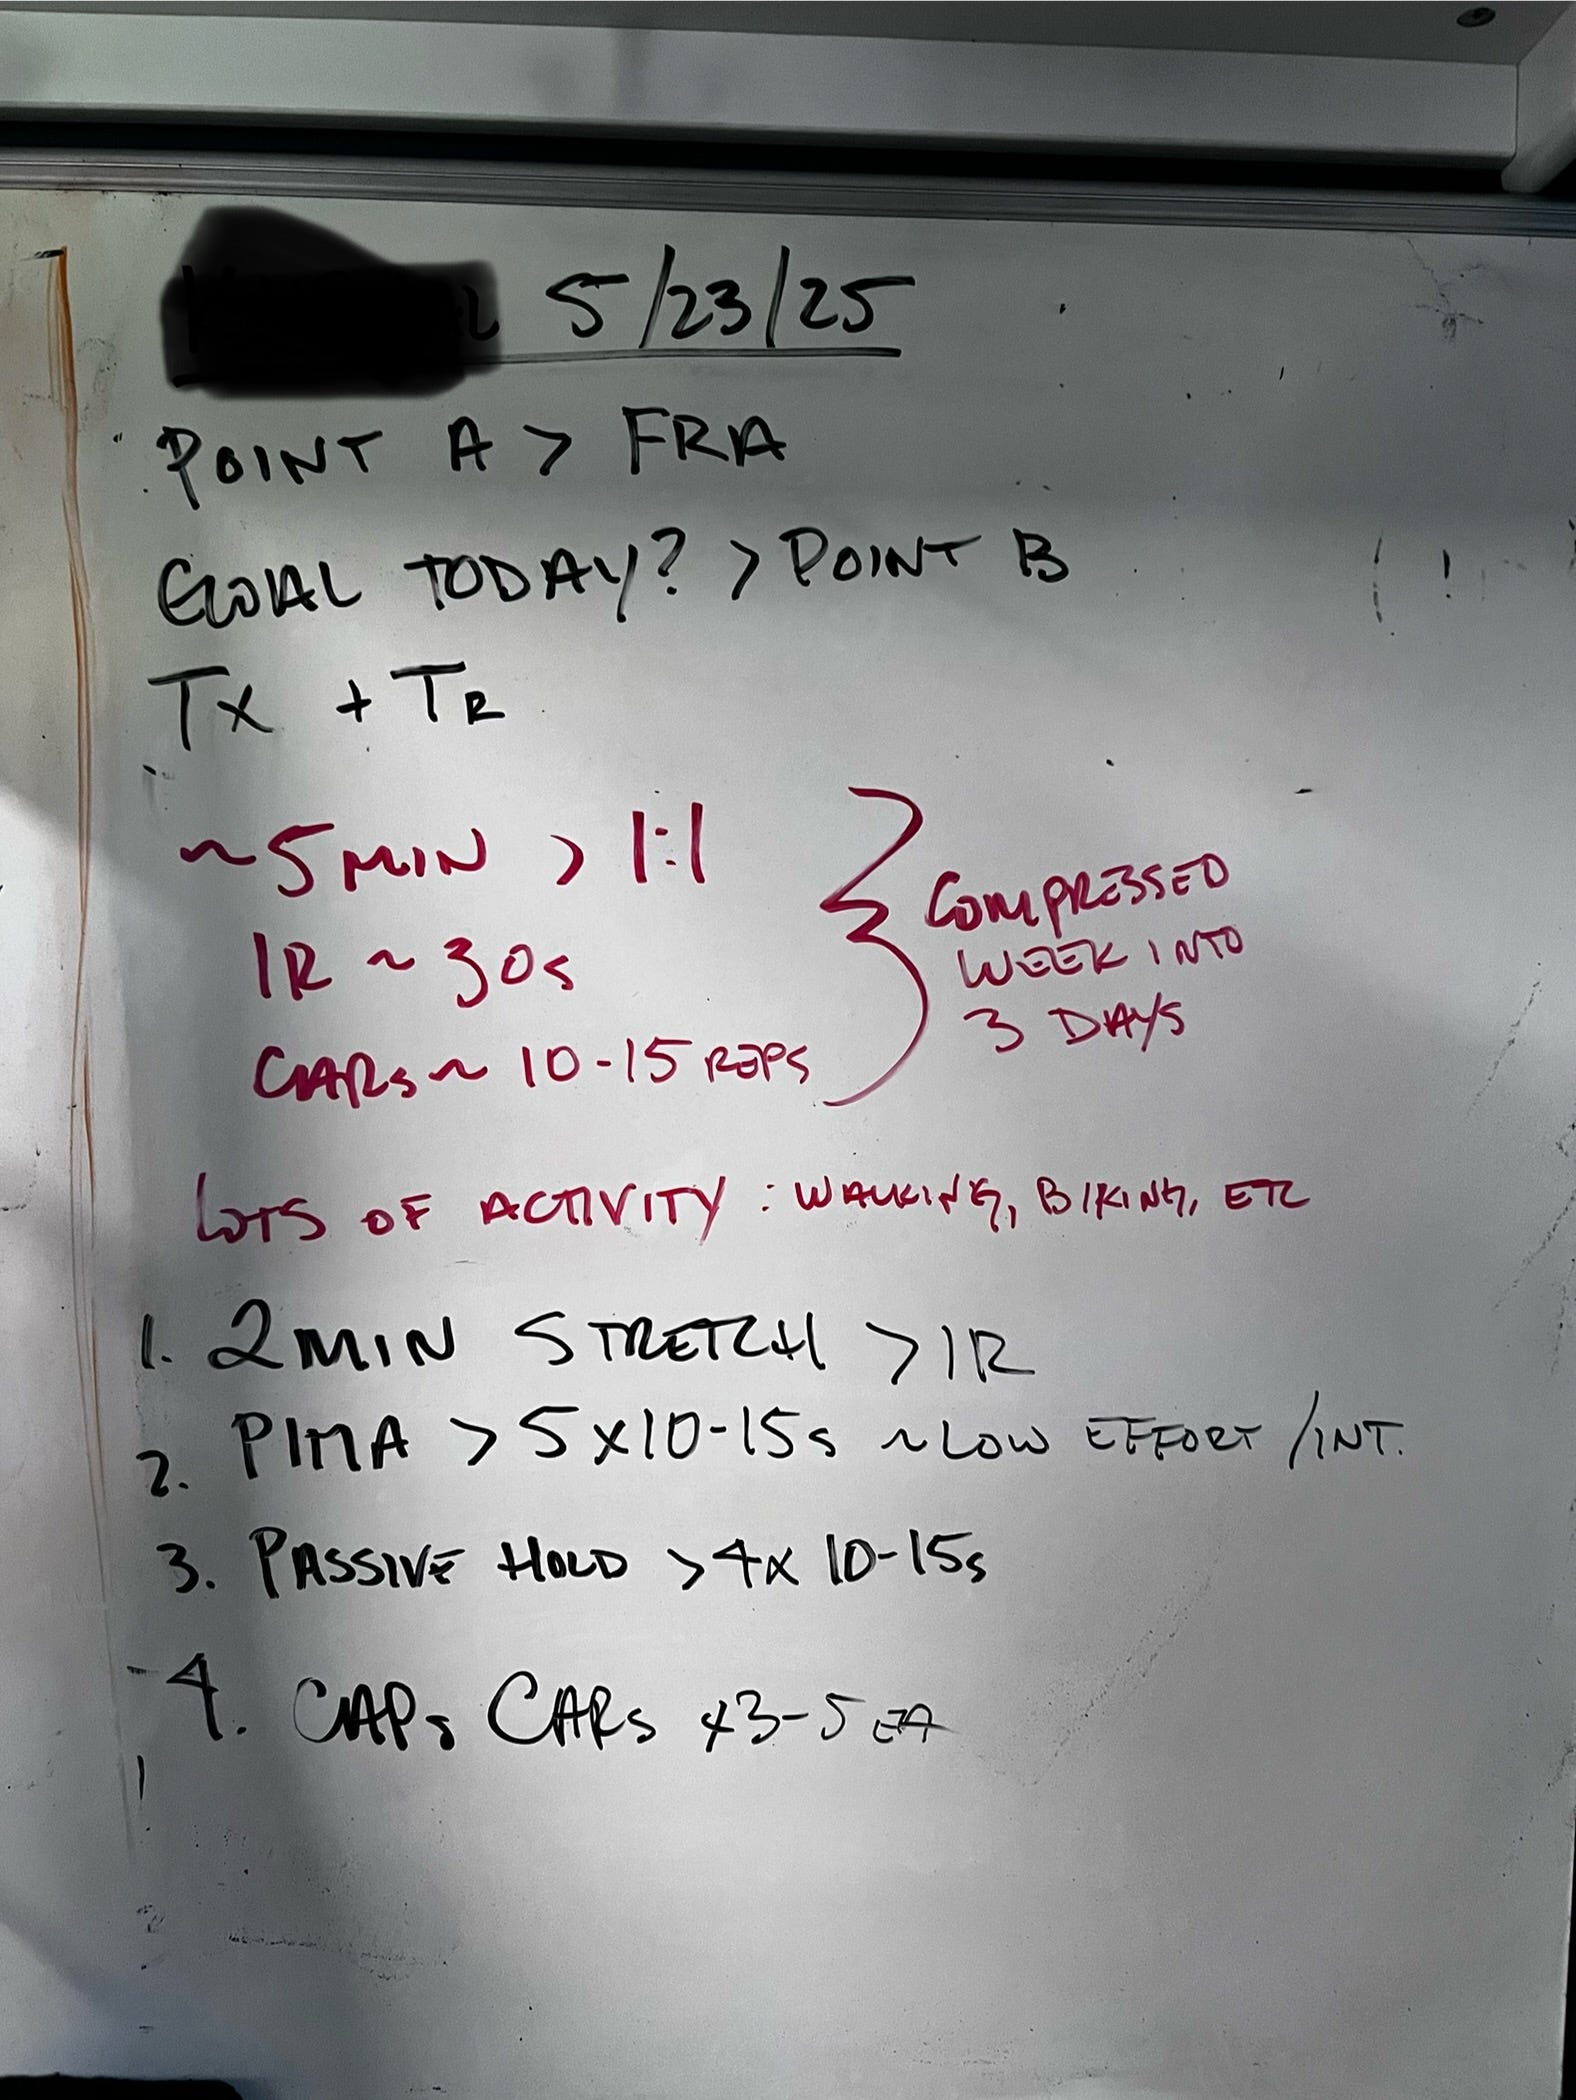 5/23/25
POINT A > FRA
GOAL TODAY? > POINT B
TX + TR
~5 MIN > 1:1
IR ~ 30s
CARs ~ 10-15 REPS
COMPRESSED
WEEK INTO
3 DAYS
LOTS OF ACTIVITY : WALKING, BIKING, ETC
1. 2 MIN STRETCH > IR
2. PIMA > 5x10-15s ~ LOW EFFORT /INT.
3. PASSIVE HOLD > 4x 10-15s
4. CAPs CARs x3-5 EA